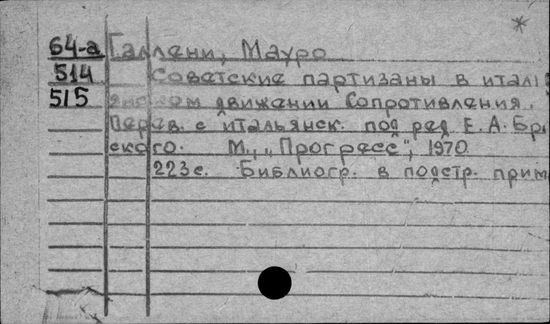 64-а Галлени, Мауро
514 Советские партизаны в итали
515 янском движении Сопротивления.
Перев. с итальянск. под ред Е. А. Бро
ского. М., „Прогресс", 1970
223с. Библиогр. в подстр. прим